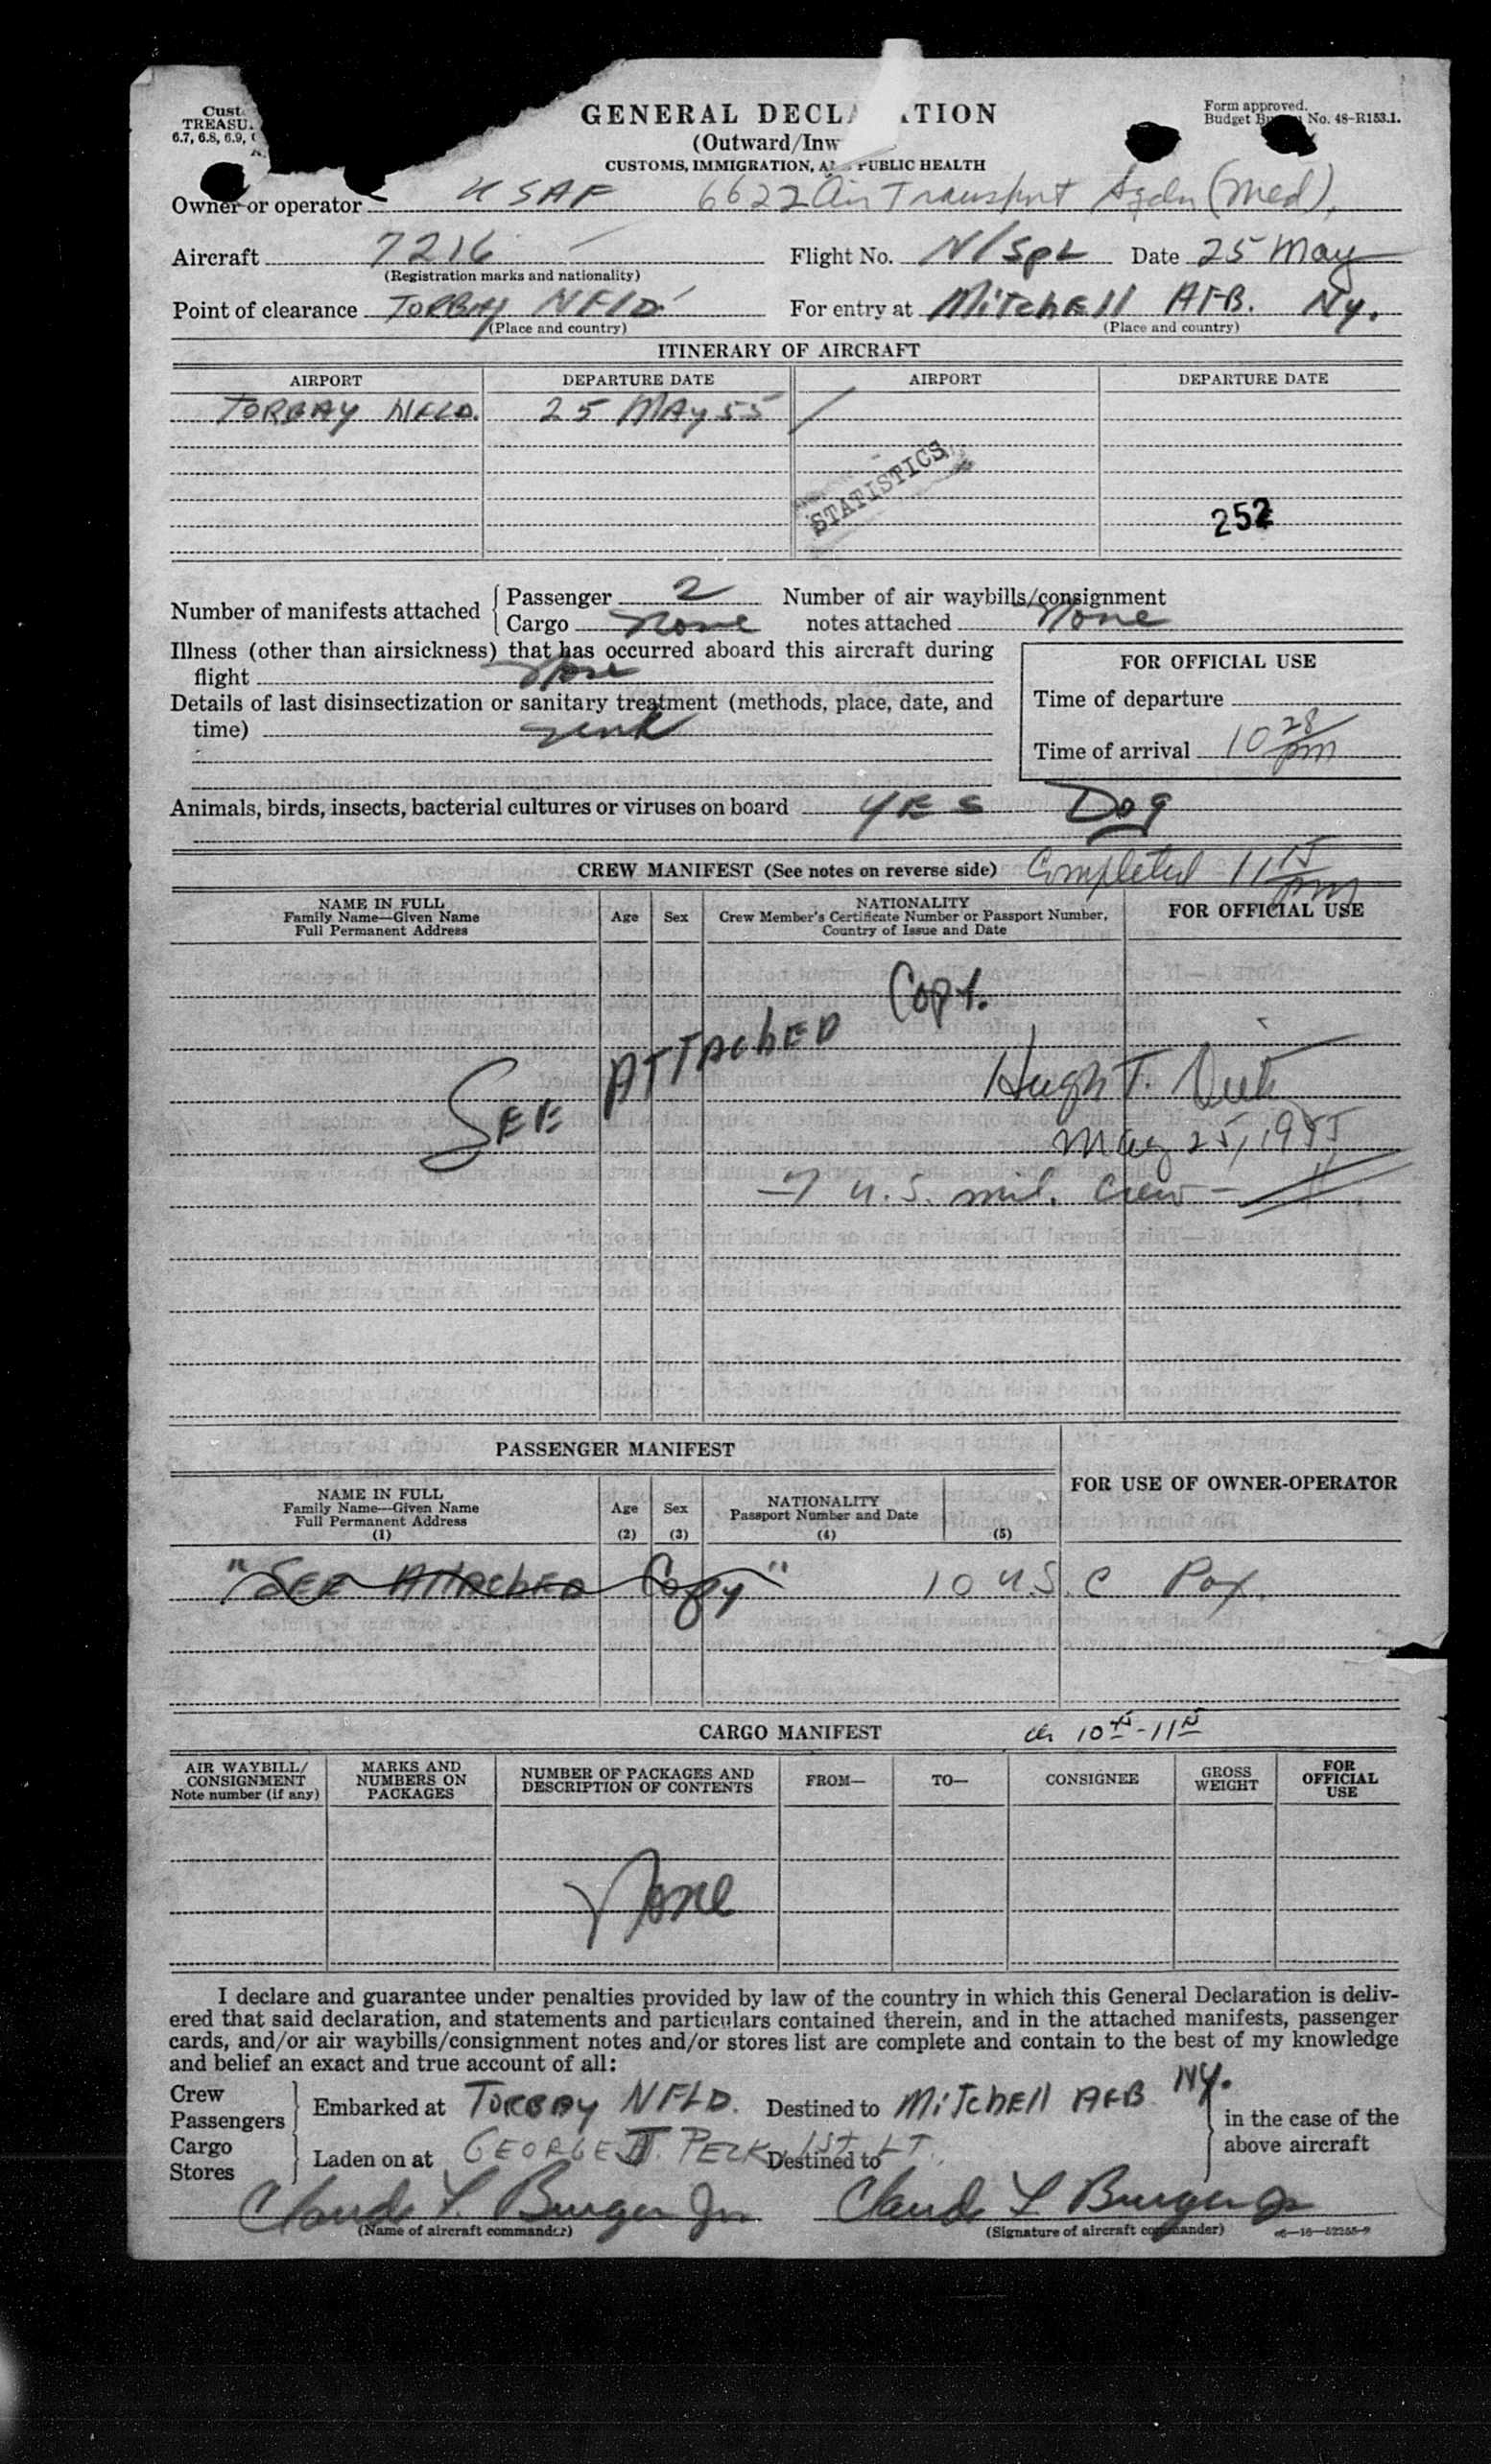 Cust
TREASU
6.7, 6.8, 6.9,
GENERAL DECL TION
(Outward/Inw
CUSTOMS, IMMIGRATION, A PUBLIC HEALTH
Form approved.
Budget Bu No. 48-R153.1.
Owner or operator USAF 6622 Air Transport Sqdn (Med),
Aircraft 7216 Flight No. N/Spl Date 25 May
(Registration marks and nationality)
Point of clearance TORBAY NFLD For entry at MitchEll AFB. Ny.
(Place and country) (Place and country)
ITINERARY OF AIRCRAFT
AIRPORT DEPARTURE DATE AIRPORT DEPARTURE DATE
TORBAY NFLD. 25 MAY 55
STATISTICS
252
Number of manifests attached { Passenger 2 Number of air waybills/consignment
Cargo None notes attached None
Illness (other than airsickness) that has occurred aboard this aircraft during
flight None
FOR OFFICIAL USE
Details of last disinsectization or sanitary treatment (methods, place, date, and
time)
Time of departure
Time of arrival 10 28 pm
Animals, birds, insects, bacterial cultures or viruses on board YES Dog
CREW MANIFEST (See notes on reverse side) Completed 11 15 pm
NAME IN FULL
Family Name—Given Name
Full Permanent Address
Age Sex
NATIONALITY
Crew Member's Certificate Number or Passport Number,
Country of Issue and Date
FOR OFFICIAL USE
SEE ATTAChED Copy.
Hugh T.
May 25, 1955
-7 U.S. mil. Crew-
PASSENGER MANIFEST
FOR USE OF OWNER-OPERATOR
NAME IN FULL
Family Name—Given Name
Full Permanent Address
(1)
Age
(2)
Sex
(3)
NATIONALITY
Passport Number and Date
(4)
(5)
"SEE AttAChED Copy" 10 U.S.C Pax.
CARGO MANIFEST
AIR WAYBILL/
CONSIGNMENT
Note number (if any)
MARKS AND
NUMBERS ON
PACKAGES
NUMBER OF PACKAGES AND
DESCRIPTION OF CONTENTS
FROM—
TO—
CONSIGNEE
GROSS
WEIGHT
FOR
OFFICIAL
USE
None
I declare and guarantee under penalties provided by law of the country in which this General Declaration is deliv-
ered that said declaration, and statements and particulars contained therein, and in the attached manifests, passenger
cards, and/or air waybills/consignment notes and/or stores list are complete and contain to the best of my knowledge
and belief an exact and true account of all:
Crew
Passengers
Embarked at TORBAY NFLD. Destined to MiTchEll AFB NY.
in the case of the
above aircraft
Cargo
Stores
Laden on at GEORGE T. PECK 1ST LT. Destined to
Claude L. Burger Jr Claude L Burger Jr
(Name of aircraft commander) (Signature of aircraft commander) 16—52255-2